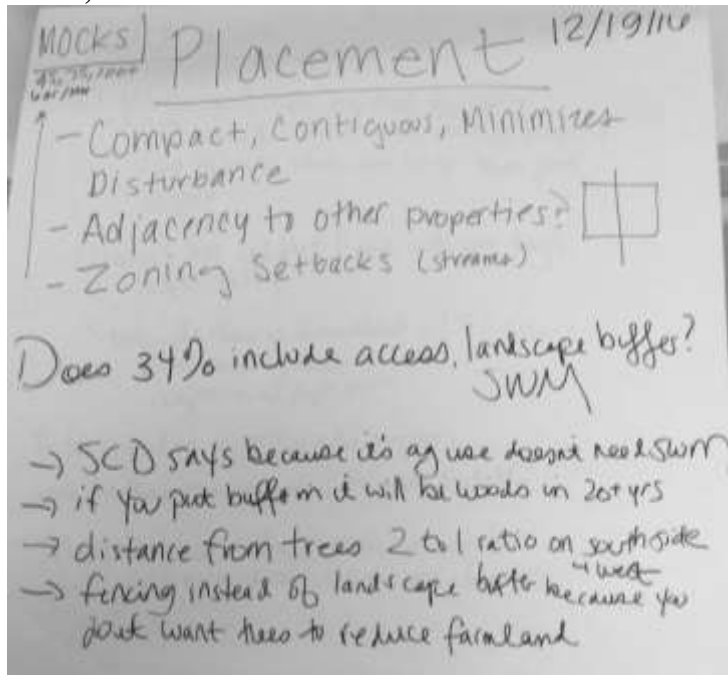 MOCKS
Placement
12/19/16
- Compact, Contiguous, Minimizes
Disturbance
- Adjacency to other properties?
- Zoning Setbacks (streams)
Does 34% include access, landscape buffer?
SWM
→ SCD says because it's ag use doesnt need SWM
→ if you put buffer in it will be woods in 20+ yrs
→ distance from trees 2 to 1 ratio on south side
+ west
→ fencing instead of landscape buffer because you
dont want trees to reduce farmland